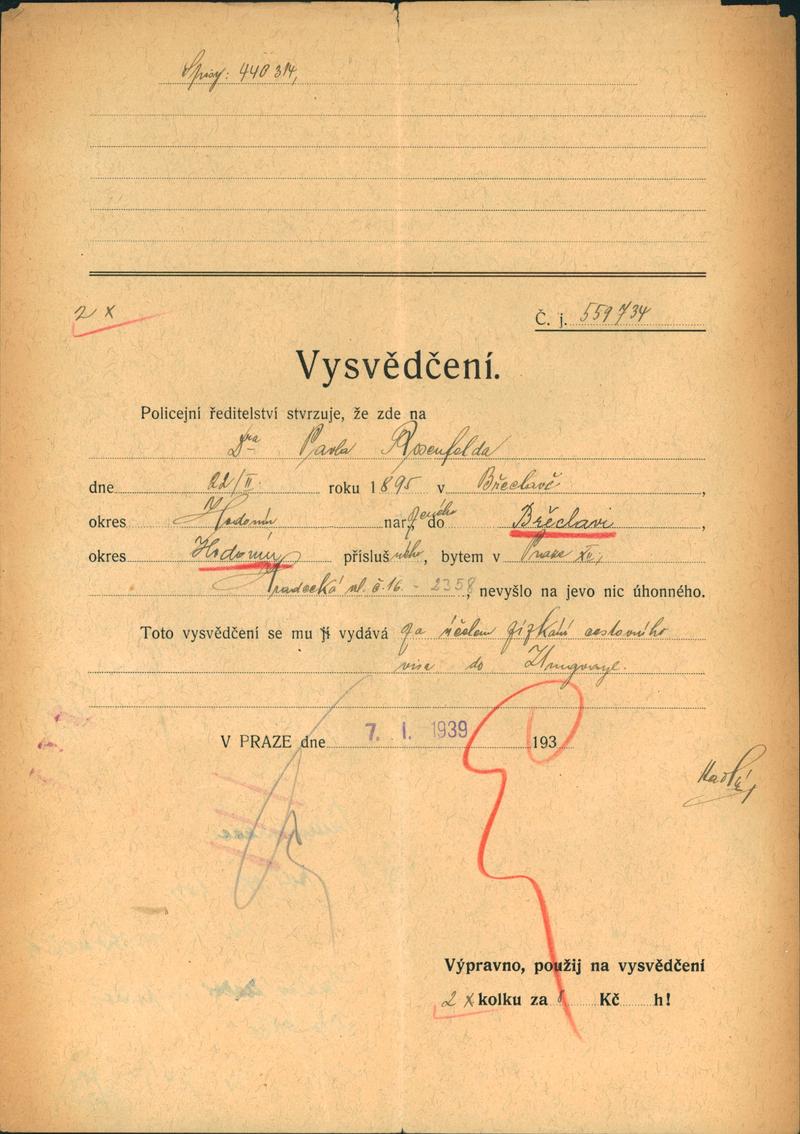 Spisy: 440314,
2 x
Č. j. 559734
Vysvědčení.
Policejní ředitelství stvrzuje, že zde na
Dra Pavla Rosenfelda
dne 22/II. roku 1895 v Břeclavě,
okres Hodonín nar. do Břeclavi,
okres Hodonín přísluš ného, bytem v Praze XII,
Hradecká ul. č. 16. - 2358, nevyšlo na jevo nic úhonného.
Toto vysvědčení se mu ji vydává za účelem získání cestovního
visa do
V PRAZE dne 7. I. 1939 193
Výpravno, použij na vysvědčení
2 x kolku za Kč h!